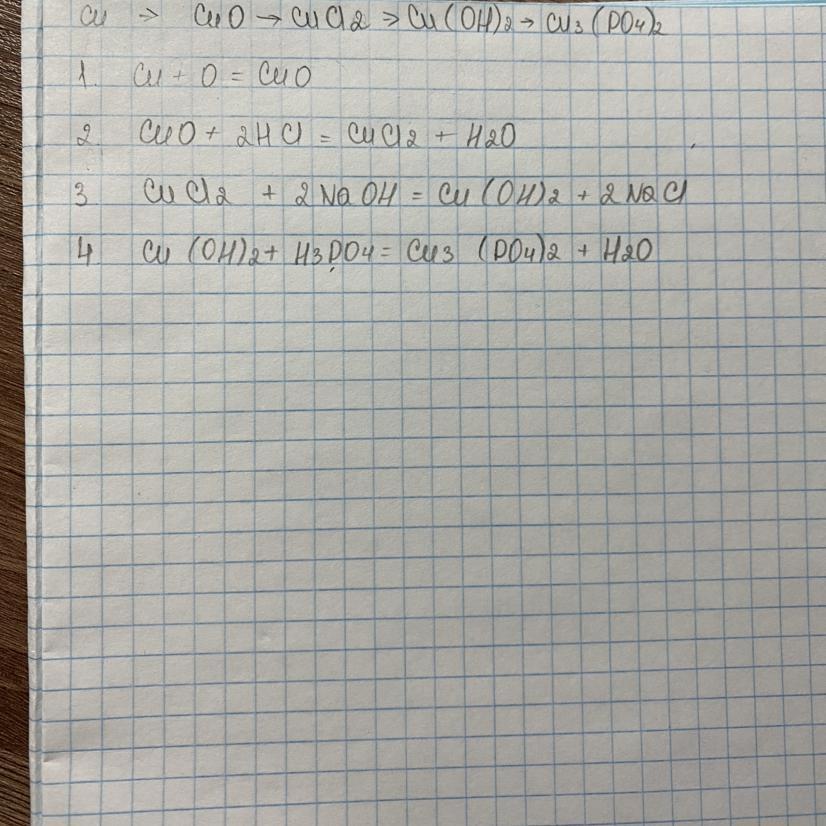 Cu → CuO → CuCl2 → Cu(OH)2 → Cu3(PO4)2
1. Cu + O = CuO
2. CuO + 2HCl = CuCl2 + H2O
3 CuCl2 + 2NaOH = Cu(OH)2 + 2NaCl
4. Cu(OH)2 + H3PO4 = Cu3(PO4)2 + H2O